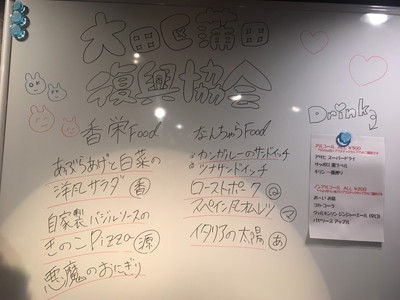 大田区蒲田
復興協会
Drink
香栄Food
あぶらあげと白菜の
洋風サラダ 香
自家製バジルソースの
きのこPizza 源
悪魔のおにぎり
なんちゃらFood
カンガルーのサンドイッチ
ツナサンドイッチ
ローストポーク
スペイン風オムレツ マ
イタリアの太陽 あ
アルコール ALL ¥500
アサヒ スーパードライ
ノンアルコール ALL ¥200
お〜いお茶
コカ・コーラ